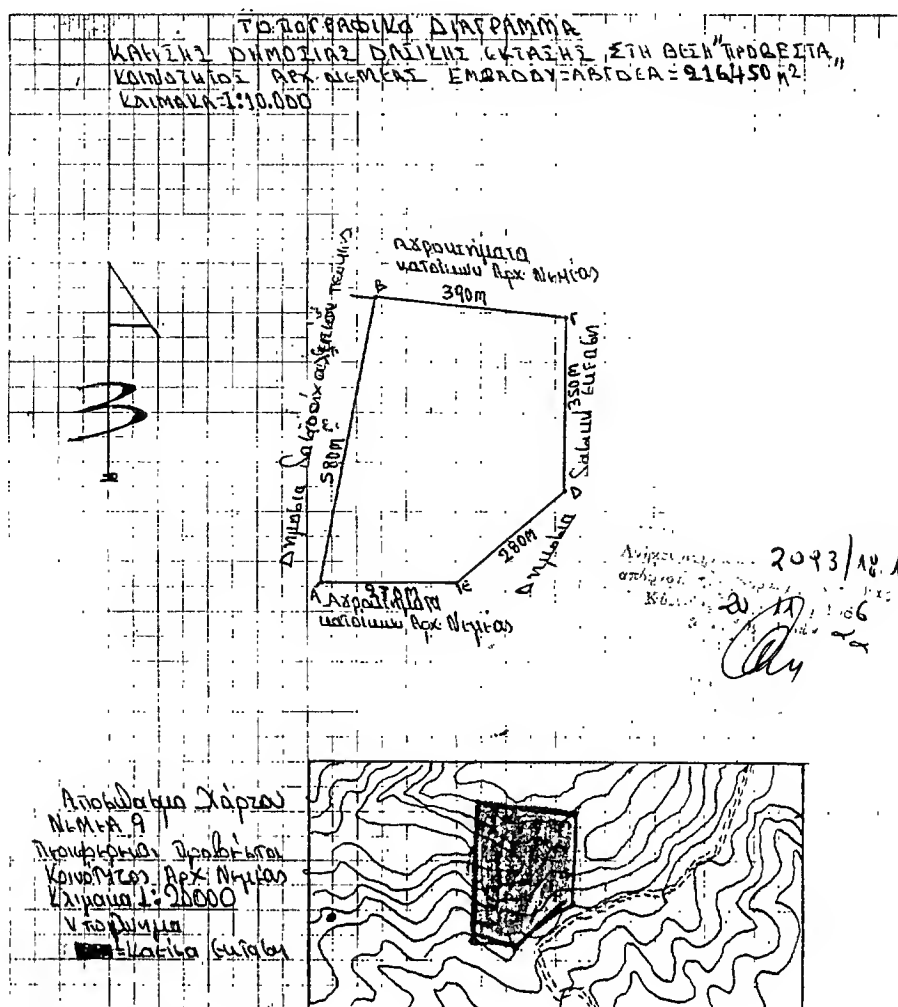 ΤΟΠΟΓΡΑΦΙΚΟ ΔΙΑΓΡΑΜΜΑ
ΚΑΕΙΣΗΣ ΔΗΜΟΣΙΑΣ ΔΑΣΙΚΗΣ ΕΚΤΑΣΗΣ, ΣΤΗ ΘΕΣΗ "ΠΡΟΒΕΣΤΑ"
ΚΟΙΝΟΤΗΤΟΣ ΑΡΧ. ΝΕΜΕΑΣ ΕΜΒΑΔΟΥ=ΑΒΓΔΕΑ=216450 m2
ΚΛΙΜΑΚΑ=1:10.000
Αγροκτήματα
κατοίκων Αρχ. Νεμέας
390m
Β
Γ
Δημόσια
580m
350m
Δασική έκταση
Δ
280m
Δημόσια
Α
Ε
Αγροκτήματα
κατοίκων Αρχ. Νεμέας
Β
20 11
Απόσπασμα Χάρτου
ΝΕΜΕΑ 9
Περιφέρεια Προβέστα
Κοινότητος Αρχ. Νεμέας
Κλίμακα 1:20000
Υπόμνημα
=Καείσα έκταση